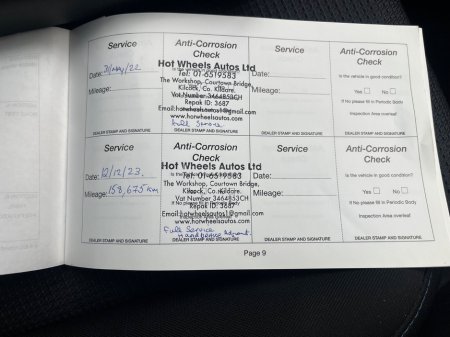 Service
Anti-Corrosion
Check
Service
Anti-Corrosion
Check
Date: 31/May/22
Hot Wheels Autos Ltd
Tel: 01-6519583
Date:
Is the vehicle in good condition?
Mileage:
The Workshop, Courtown Bridge,
Kilcock, Co. Kildare.
Mileage:
Yes No
Vat Number 3464853CH
Repak ID: 3687
If No please fill in Periodic Body
Email:hotwheelsautos1@gmail.com
Inspection Area overleaf
Full Service
DEALER STAMP AND SIGNATURE
DEALER STAMP AND SIGNATURE
DEALER STAMP AND SIGNATURE
DEALER STAMP AND SIGNATURE
Service
Anti-Corrosion
Check
Service
Anti-Corrosion
Check
Date: 12/12/23.
Hot Wheels Autos Ltd
Tel: 01-6519583
Date:
Is the vehicle in good condition?
Mileage: 158,675 km
The Workshop, Courtown Bridge,
Kilcock, Co. Kildare.
Mileage:
Yes No
Vat Number 3464853CH
Repak ID: 3687
If No please fill in Periodic Body
Email:hotwheelsautos1@gmail.com
Inspection Area overleaf
Full Service
Handbrake
DEALER STAMP AND SIGNATURE
DEALER STAMP AND SIGNATURE
DEALER STAMP AND SIGNATURE
DEALER STAMP AND SIGNATURE
Page 9